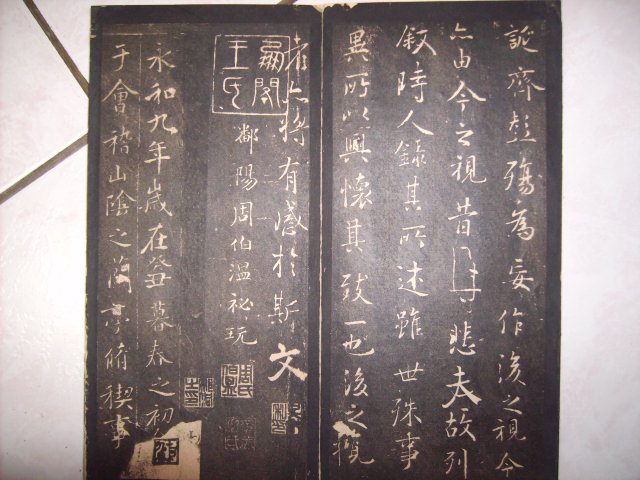 誕齊彭殤為妄作後之視今
亦由今之視昔悲夫故列
叙時人錄其所述雖世殊事
異所以興懷其致一也後之攬
者亦將有感於斯文
王氏
鄱陽周伯溫祕玩
周氏
永和九年歲在癸丑暮春之初
于會稽山陰之蘭亭脩稧事